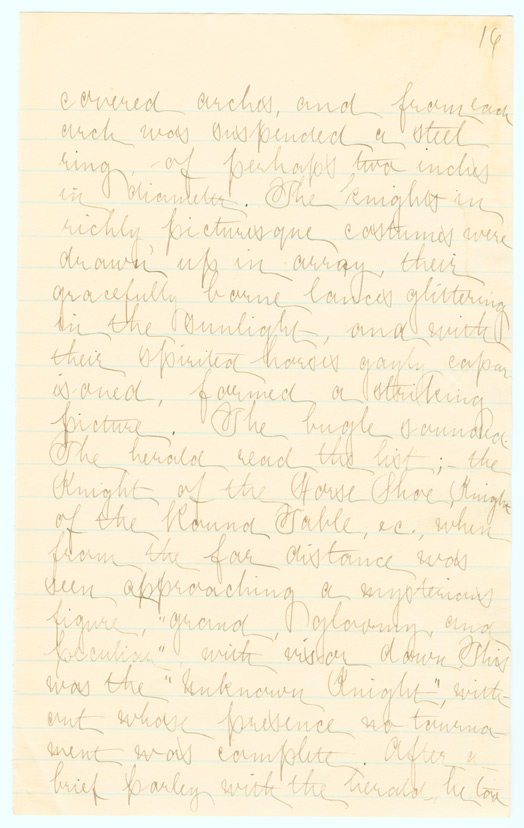 16
covered arches, and from each
arch was suspended a steel
ring, of perhaps two inches
in diameter. The knights in
richly picturesque costumes were
drawn up in array, their
gracefully borne lances glittering
in the sunlight, and with
their spirited horses gayly capar
isoned, formed a striking
picture. The bugle sounded.
The herald read the list;- the
Knight of the Horse Shoe, Knight
of the Round Table, ec., when
from the far distance was
seen approaching a mysterious
figure, "grand, gloomy, and
peculiar", with visor down. This
was the "Unknown Knight", with-
out whose presence no tourna
ment was complete. After a
brief parley with the herald, he too